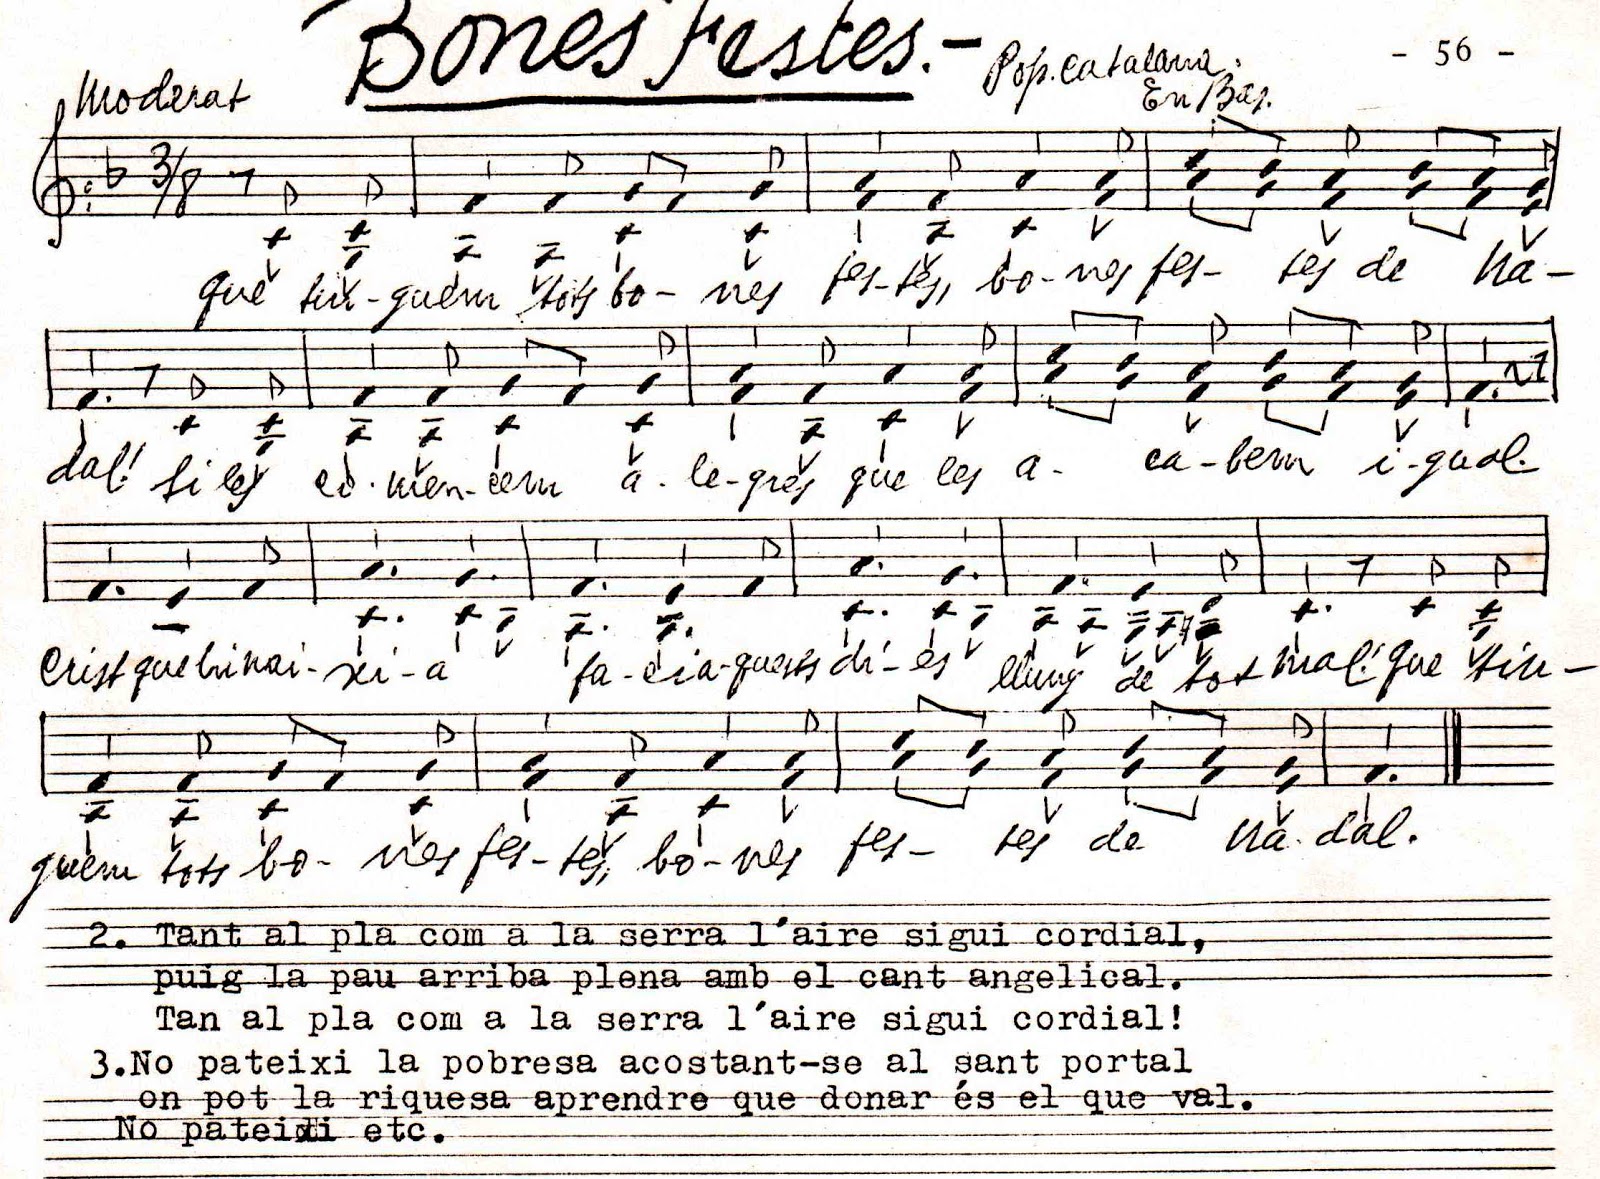 Bones Festes.-
- 56 -
Pop. catalana.
En Bas.
Moderat
3/8
que tin-guem tots bo- nes fes-tes, bo-nes fes- tes de Na-
dal! si les co-men-cem a-le-gres que les a- ca-bem i-gual.
Crist que hi nai-xi-a fa-cia-quests di-es lluny de tot mal! que tin-
guem tots bo- nes fes-tes, bo-nes fes- tes de Na-dal.
2. Tant al pla com a la serra l'aire sigui cordial,
puig la pau arriba plena amb el cant angelical.
Tan al pla com a la serra l'aire sigui cordial!
3.No pateixi la pobresa acostant-se al sant portal
on pot la riquesa aprendre que donar és el que val.
No pateixi etc.